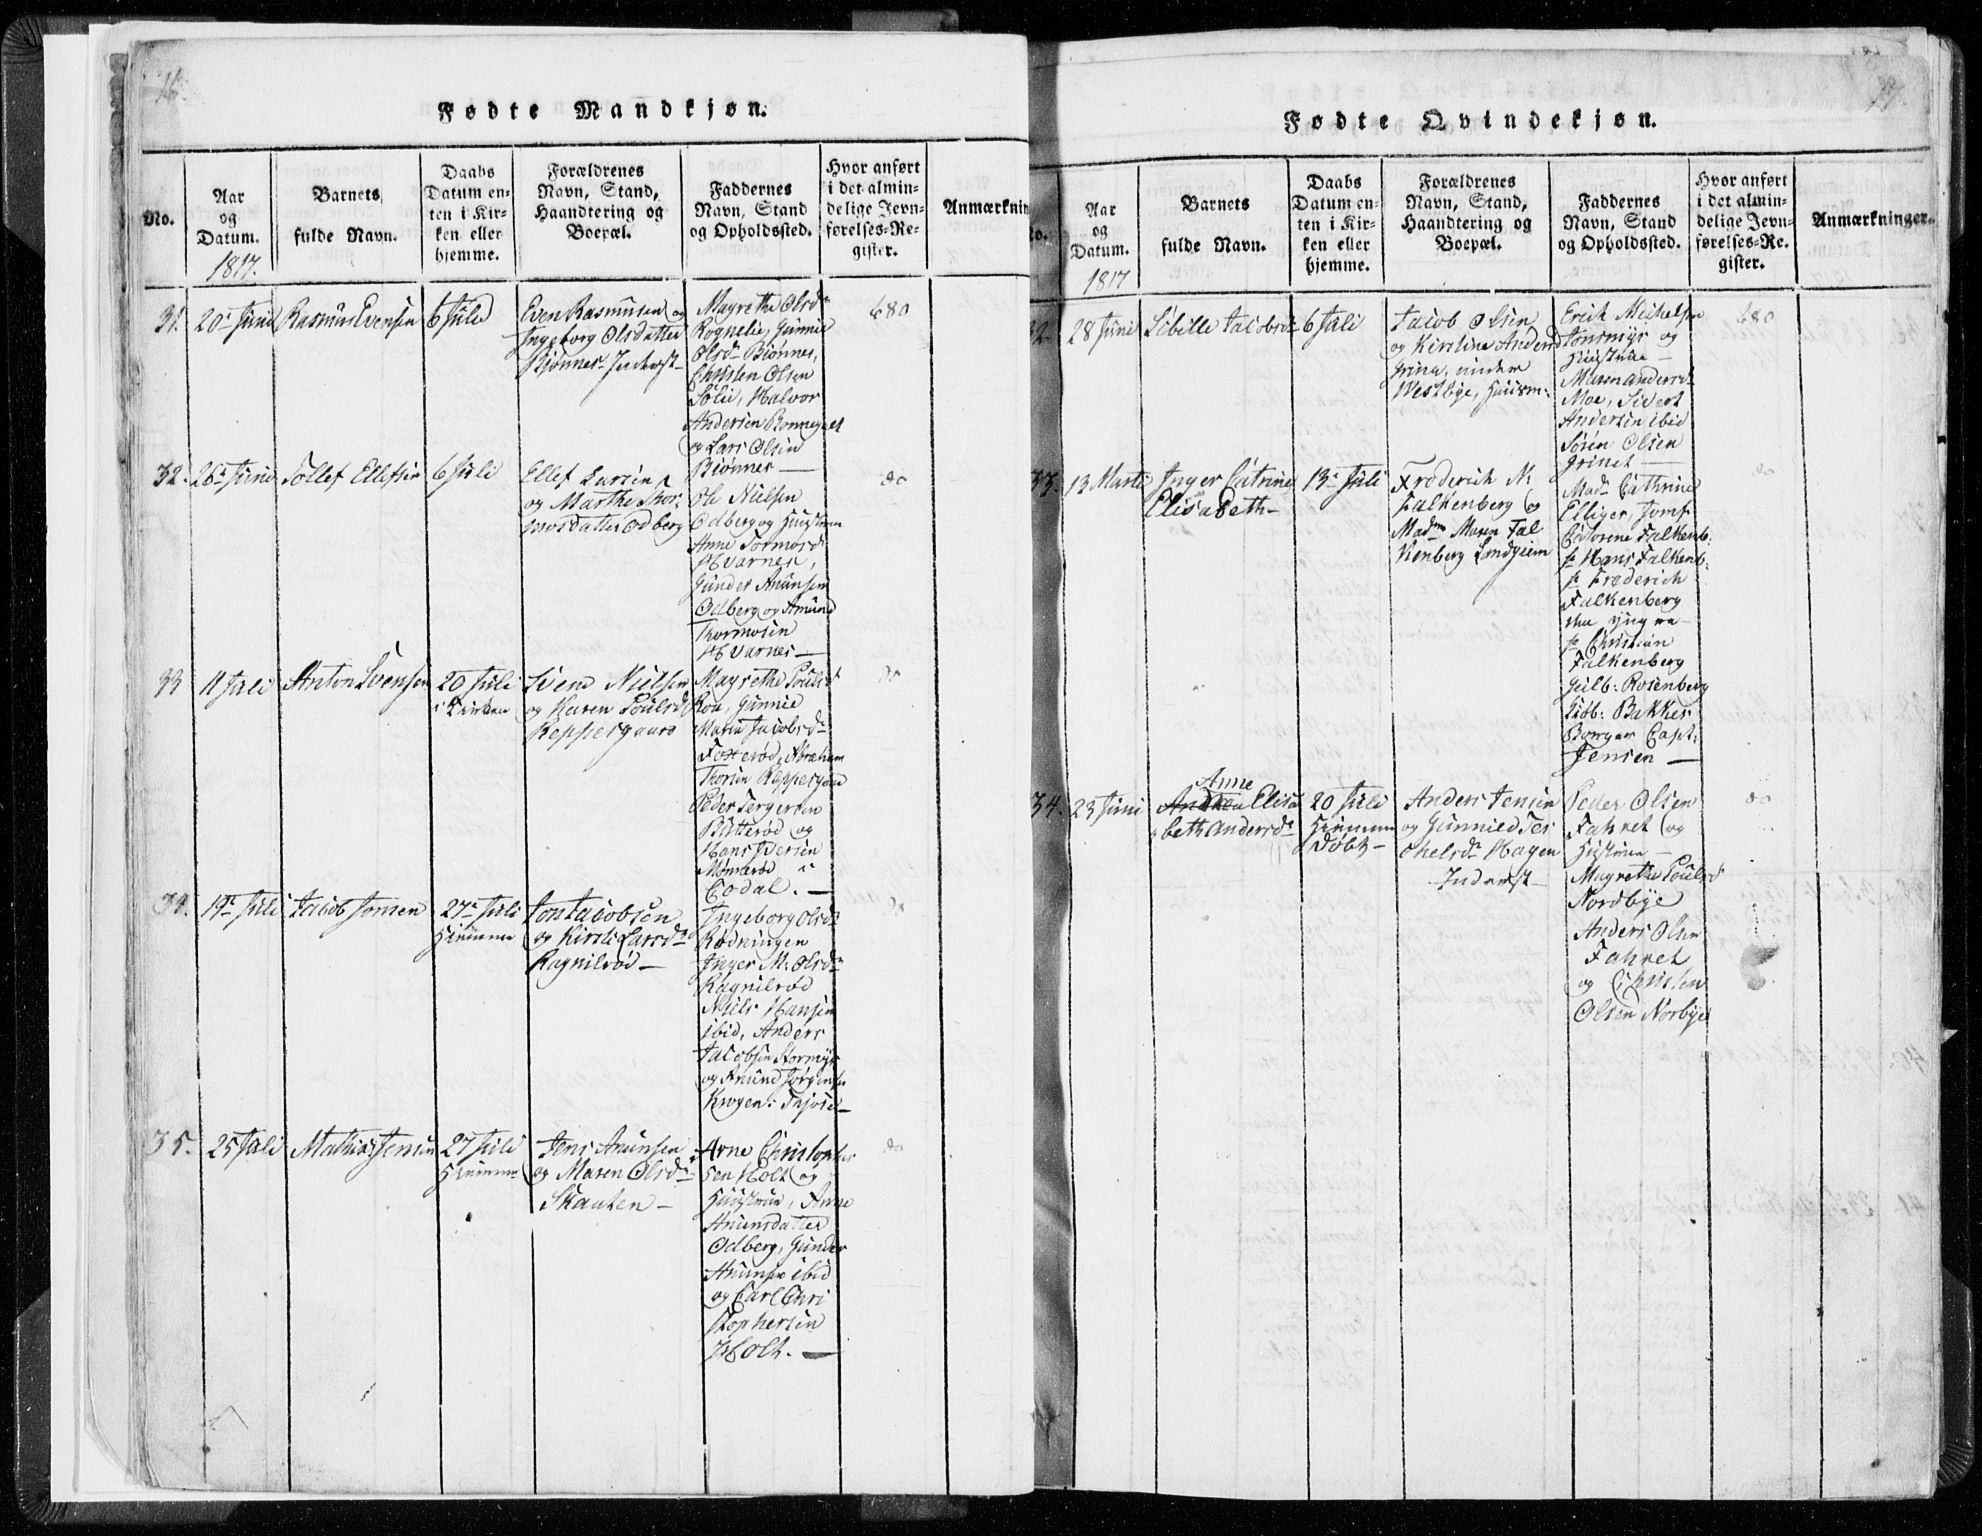 16.
Fødte Mandkjøn.
No.
Aar
og
Datum.
1817.
Barnets
fulde Navn.
Daabs
Datum en-
ten i Kir-
ken eller
hjemme.
Forældrenes
Navn, Stand,
Haandtering og
Boepæl.
Faddernes
Navn, Stand
og Opholdssted.
Hvor anført
i det almin-
delige Jevn-
førelses-Re-
gister.
Anmærknin
31.
20de Juni
Rasmus Evensen
6 Juli
Even Rasmusen og
Ingeborg Olsdatter
Bjønnes Inderst
Magrethe Olsdr
Rognelie, Gunnil
Olsdr Biønnes,
Christen Olsen
Solie, Halvor
Andersen
og Lars Olsen
Biønnes —
480
32.
26de Juni
Tollef Ellefsen
6 Juli
Ellef Larsen
og Marthe Thor:
mosdatter Odberg
Ole Nielsen
Odberg og Hustrue
Anne Tormosdr
Hvarnes,
Gunder Anunsen
Odberg og Amund
Thormosen
Hvarnes —
do
33
11 Juli
Anton Svensen
20 Juli
i Kirken
Svend Nielsen
og Karen Poulsdr
Keppesgaard
Magrethe Poulsd
Roa, Gunnil
Maria Jacobsdr
Foxerød, Abraham
Thorsen Keppesgaard
Peder Tergersen
Butterød og
Hans Iversen
Mønnerød i
Codal. —
do
34.
19de Juli
Jacob Jonsen
27de Juli
Hiemme
Jon Jacobsen
og Kirsti Larsdr
Ragnilrød —
Ingeborg Olsdr
Rødningen
Inger M. Olsdr
Ragnilrød
Niels Hansen
ibid, Anders
Jacobsen Stormyr
og Anund Jørgensen
Krogen: Thjøse —
do
35.
25 Juli
Mathias Jensen
27 Juli
Hiemme
Jens Anunsen
og Maren Olsdr
Skauten —
Arne Christopher
sen Holt og
Hustrue, Anne
Anunsdatter
Odberg, Gunder
Anunsen ibid
og Carl Chri
stophersen
Holt. —
do
17.
Fødte Qvindekjøn.
No.
Aar
og
Datum.
1817
Barnets
fulde Navn.
Daabs
Datum en-
ten i Kir-
ken eller
hjemme.
Forældrenes
Navn, Stand,
Haandtering og
Boepæl.
Faddernes
Navn, Stand
og Opholdssted.
Hvor anført
i det almin-
delige Jevn-
førelses-Re.
gister.
Anmærkninger.
32.
28 Juni
Sibille Jacobsdr
6 Juli
Jacob Olsen
og Kirstine Andersd
Grina, under
Westbye, Huusm:
Erich Michelsen
Tonsmyr og
Hustrue —
Maren Andersdr
Moe, Sivert
Andersen ibid
Søren Olsen
Grinet —
480
33.
13 Marts
Inger Catrine
Elisabeth —
13de Juli
Frederich N
Falkenberg og
Madme Maren Fal
kenberg Landgiem
Mad. Cathrine
Elliger, Jomf
Falkenb:
hr Hans Falkenb:
hr Frederich
Falkenberg
den yngre
hr Christian
Falkenberg
Gulb: Rosenberg
Bakker
Borgar Capt:
Jensen —
do
34.
23 Juni
Anne
Andrea Elisa
beth Andersdr
20 Juli
Hiemme
døbt —
Anders Jensen
og Gunnild Tes
chelsdr Hagen
Inderst
Peder Olsen
Fahret og
Hustrue —
Magrethe Poulsd
Nordbye
Anders Olsen
Fahret
og Christen
Olsen Norbye
do